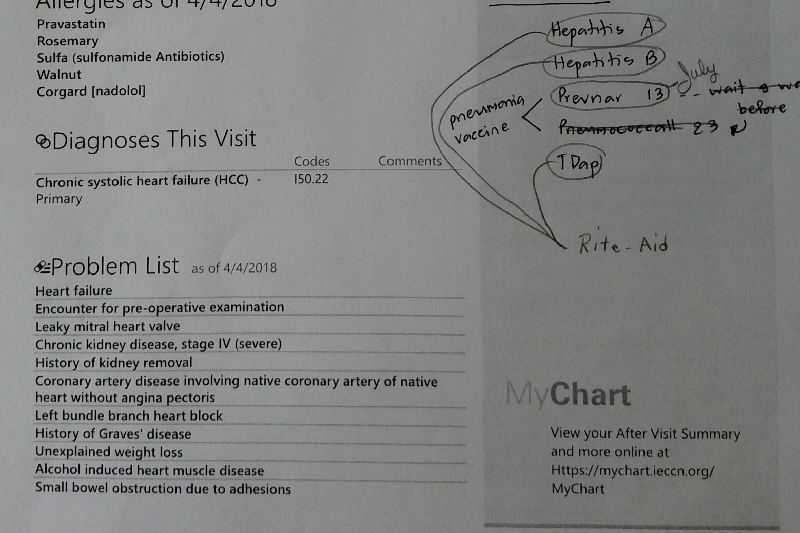 Allergies as of 4/4/2018
Pravastatin
Rosemary
Sulfa (sulfonamide Antibiotics)
Walnut
Corgard [nadolol]
Diagnoses This Visit
Codes Comments
Chronic systolic heart failure (HCC) - I50.22
Primary
Problem List as of 4/4/2018
Heart failure
Encounter for pre-operative examination
Leaky mitral heart valve
Chronic kidney disease, stage IV (severe)
History of kidney removal
Coronary artery disease involving native coronary artery of native
heart without angina pectoris
Left bundle branch heart block
History of Graves' disease
Unexplained weight loss
Alcohol induced heart muscle disease
Small bowel obstruction due to adhesions
Hepatitis A
Hepatitis B
July
Prevnar 13 -- wait
before
pneumonia
vaccine
23
TDap
Rite-Aid
MyChart
View your After Visit Summary
and more online at
Https://mychart.ieccn.org/
MyChart